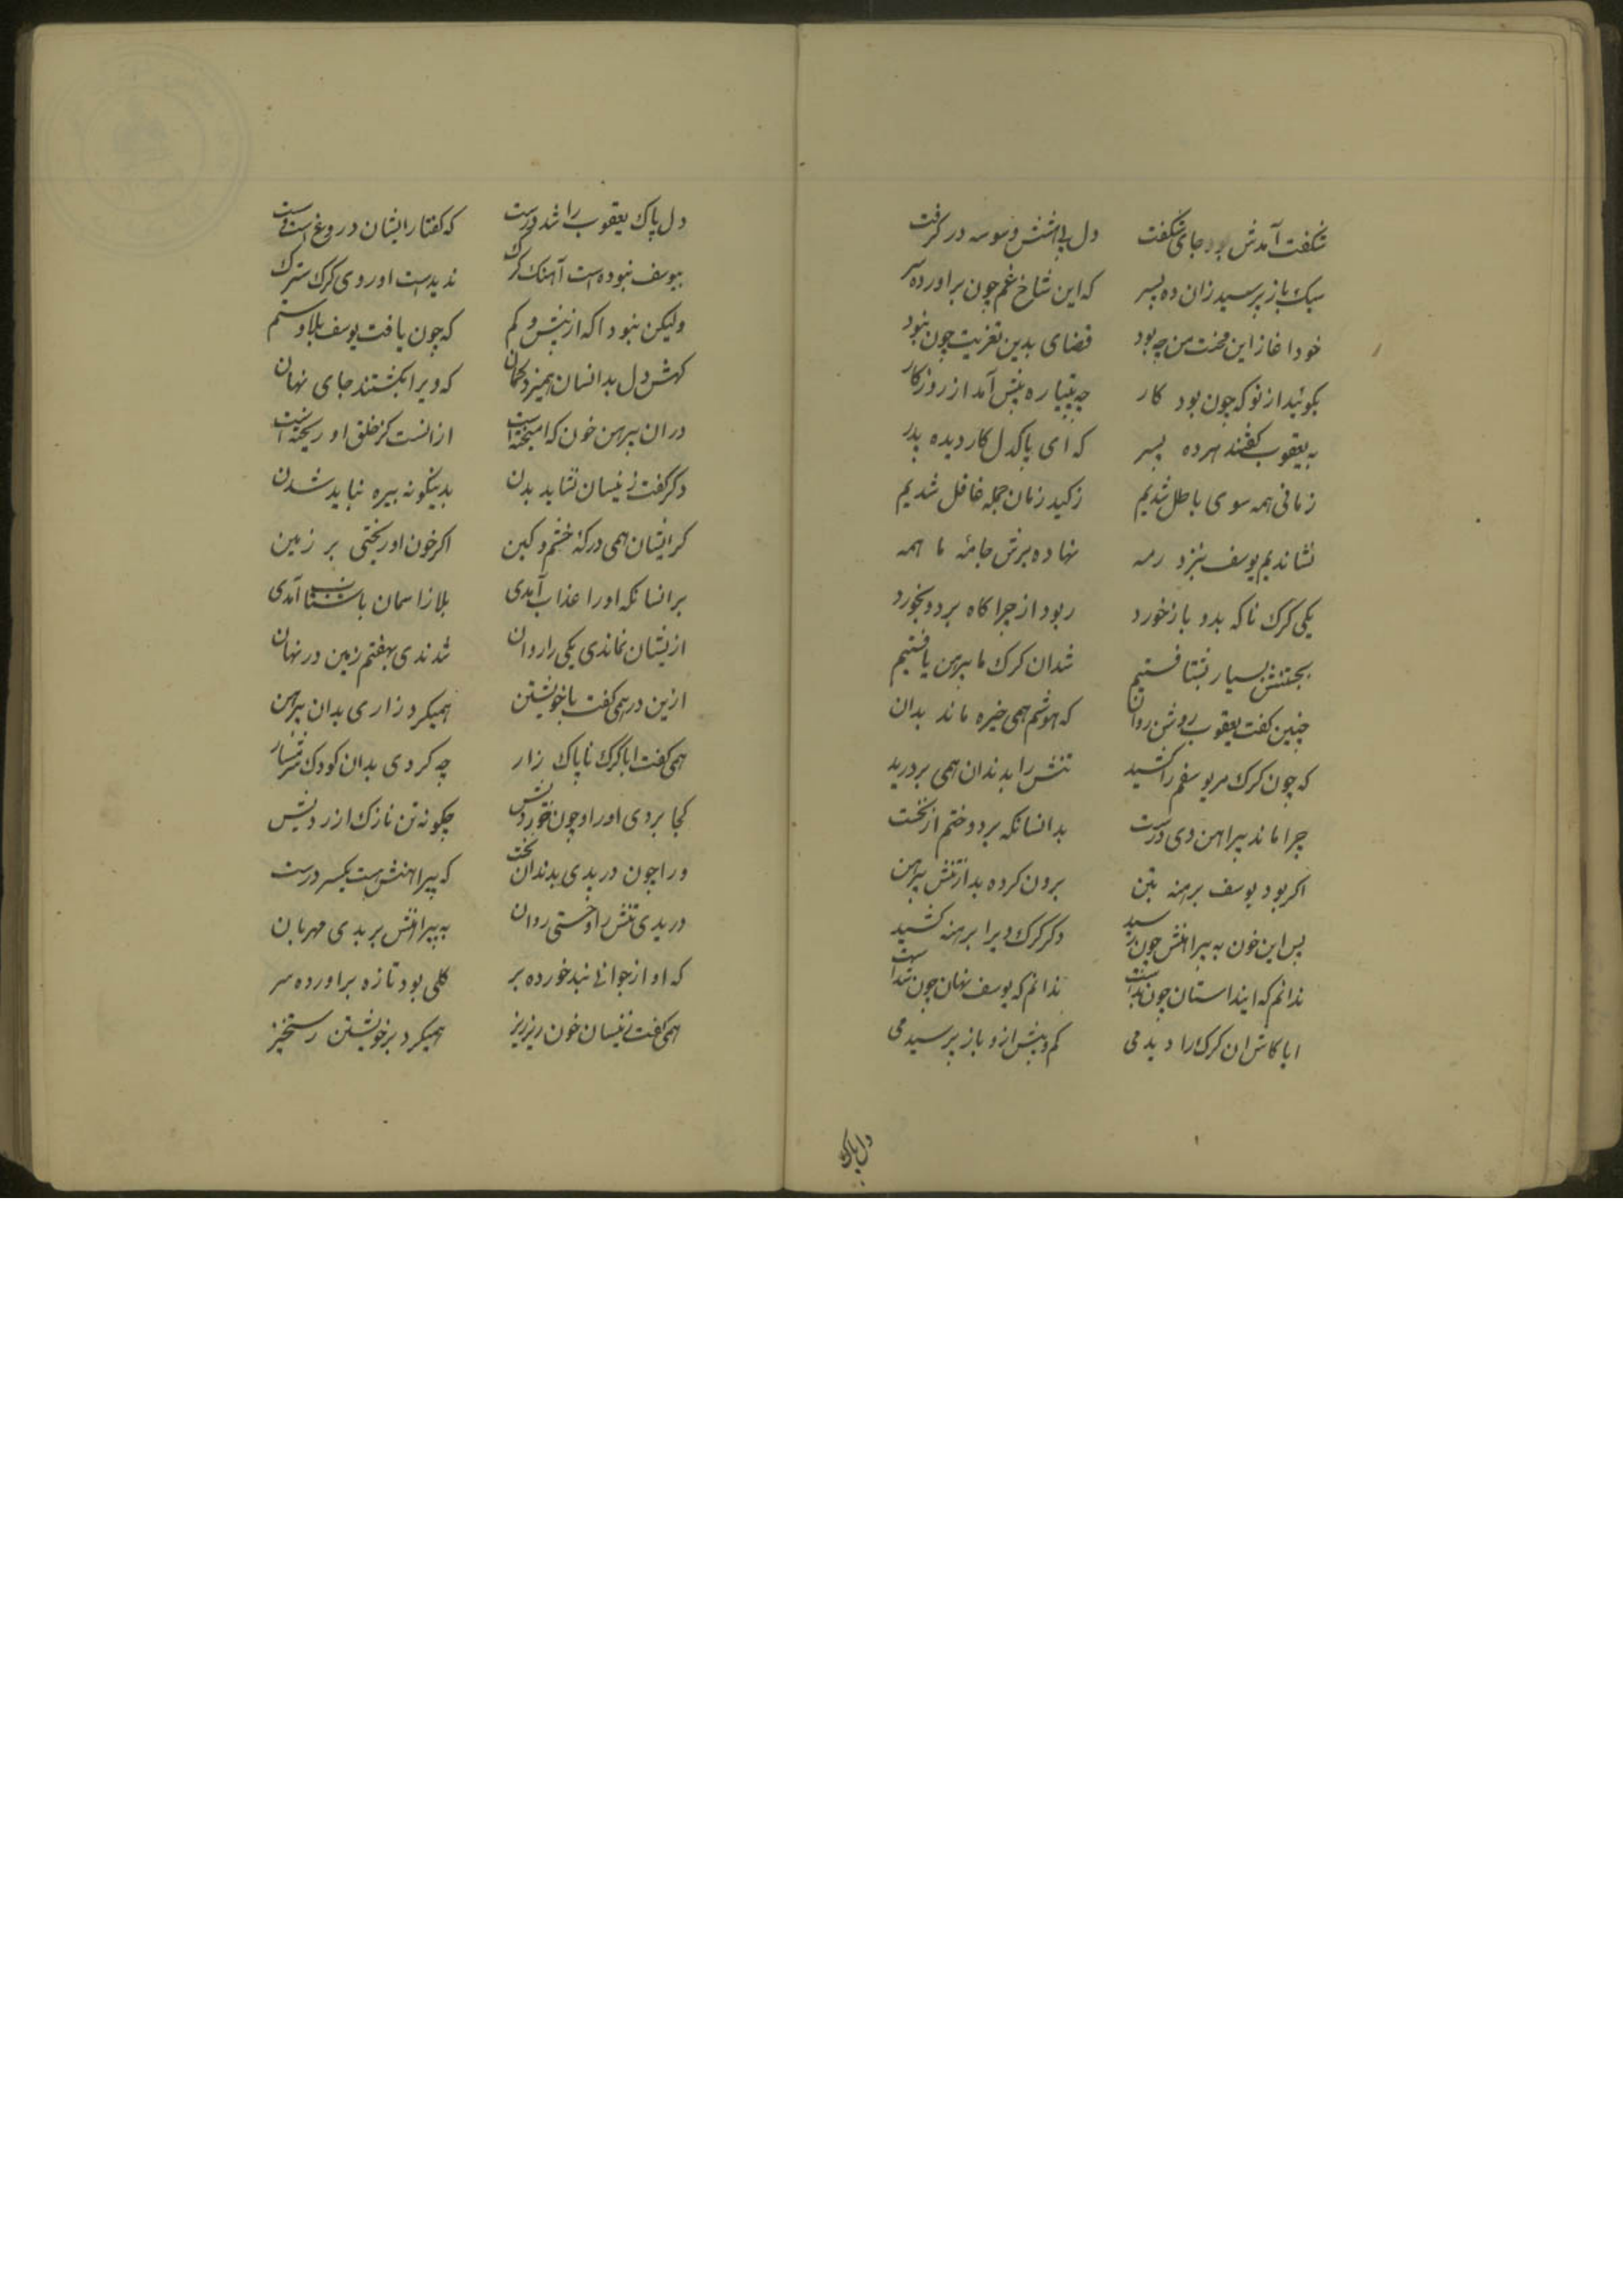 شکفت آمدش بود جای شکفت دل بیهشش وسوسه در کرفت
سبک باز پرسید زان ده پسر که این شاخ غم چون براورده سر
خود اغاز این محنت من چه بود قضای بدین تعزیت چون نبود
بکوئید از نو که چون بود کار چه پتیاره پیش آمد از روزکار
به یعقوب کفتند هر ده پسر که ای پاکدل کار دیده پدر
زمانی همه سوی باطل شدیم زکید زمان جمله غافل شدیم
نشاندیم یوسف بنزد رمه نهاده برش جامهٔ ما همه
یکی کرک ناکه بدو باز خورد ربود از چراکاه برد و بخورد
بجستنش بسیار بشتافتیم نشد ان کرک ما پیرهن یافتیم
چنین کفت یعقوب روشن روان که هوشم همی خیره ماند بدان
که چون کرک مر یوسفم را کشید تنش را بدندان همی بردرید
چرا ماند پیراهن وی درست بدانسانکه بردوختم از نخست
اکر بود یوسف برهنه بتن برون کرده بد از تنش پیرهن
پس این خون به پیراهنش چون رسید دکر کرک ویرا برهنه کشید
ندانم که اینداستان چون بدست ندانم که یوسف نهان چون شدست
ایا کاش ان کرک را دیدمی کم وبیش ازو باز پرسیدمی
دل پاک
دل پاک یعقوب را شد درست که کفتار ایشان دروغ است وسست
بیوسف نبودست آهنک کرک ندیدست او روی کرک سترک
ولیکن نبود اکه از بیش و کم که چون یافت یوسف بلا و ستم
کهش دل بدانسان همیزد کمان که ویرا بکشتند جای نهان
دران پیرهن خون که امیخته است ازانست کز خلق او ریخته است
دکر کفت زینسان نشاید بدن بدینکونه بیره نباید شدن
کر ایشان همی در که خشم و کین اکر خون او ریختی بر زمین
برانسانکه او را عذاب آمدی بلا زاسمان باشتاب آمدی
ازیشان نماندی یکی را روان شدندی بهفتم زمین در نهان
ازین در همی کفت با خویشتن همیکرد زاری بدان پیرهن
همی کفت ایا کرک ناپاک زار چه کردی بدان کودک شرمسار
کجا بردی او را و چون خوردیش چکونه تن نازک ازردیش
ورا چون دریدی بدندان نخست که پیراهنش هست یکسر درست
دریدی تنش را و خستی روان به پیراهنش بر بدی مهربان
که او از جوانی نبد خورده بر کلی بود تازه براورده سر
همی کفت زینسان خون ریزریز همیکرد بر خویشتن رستخیز